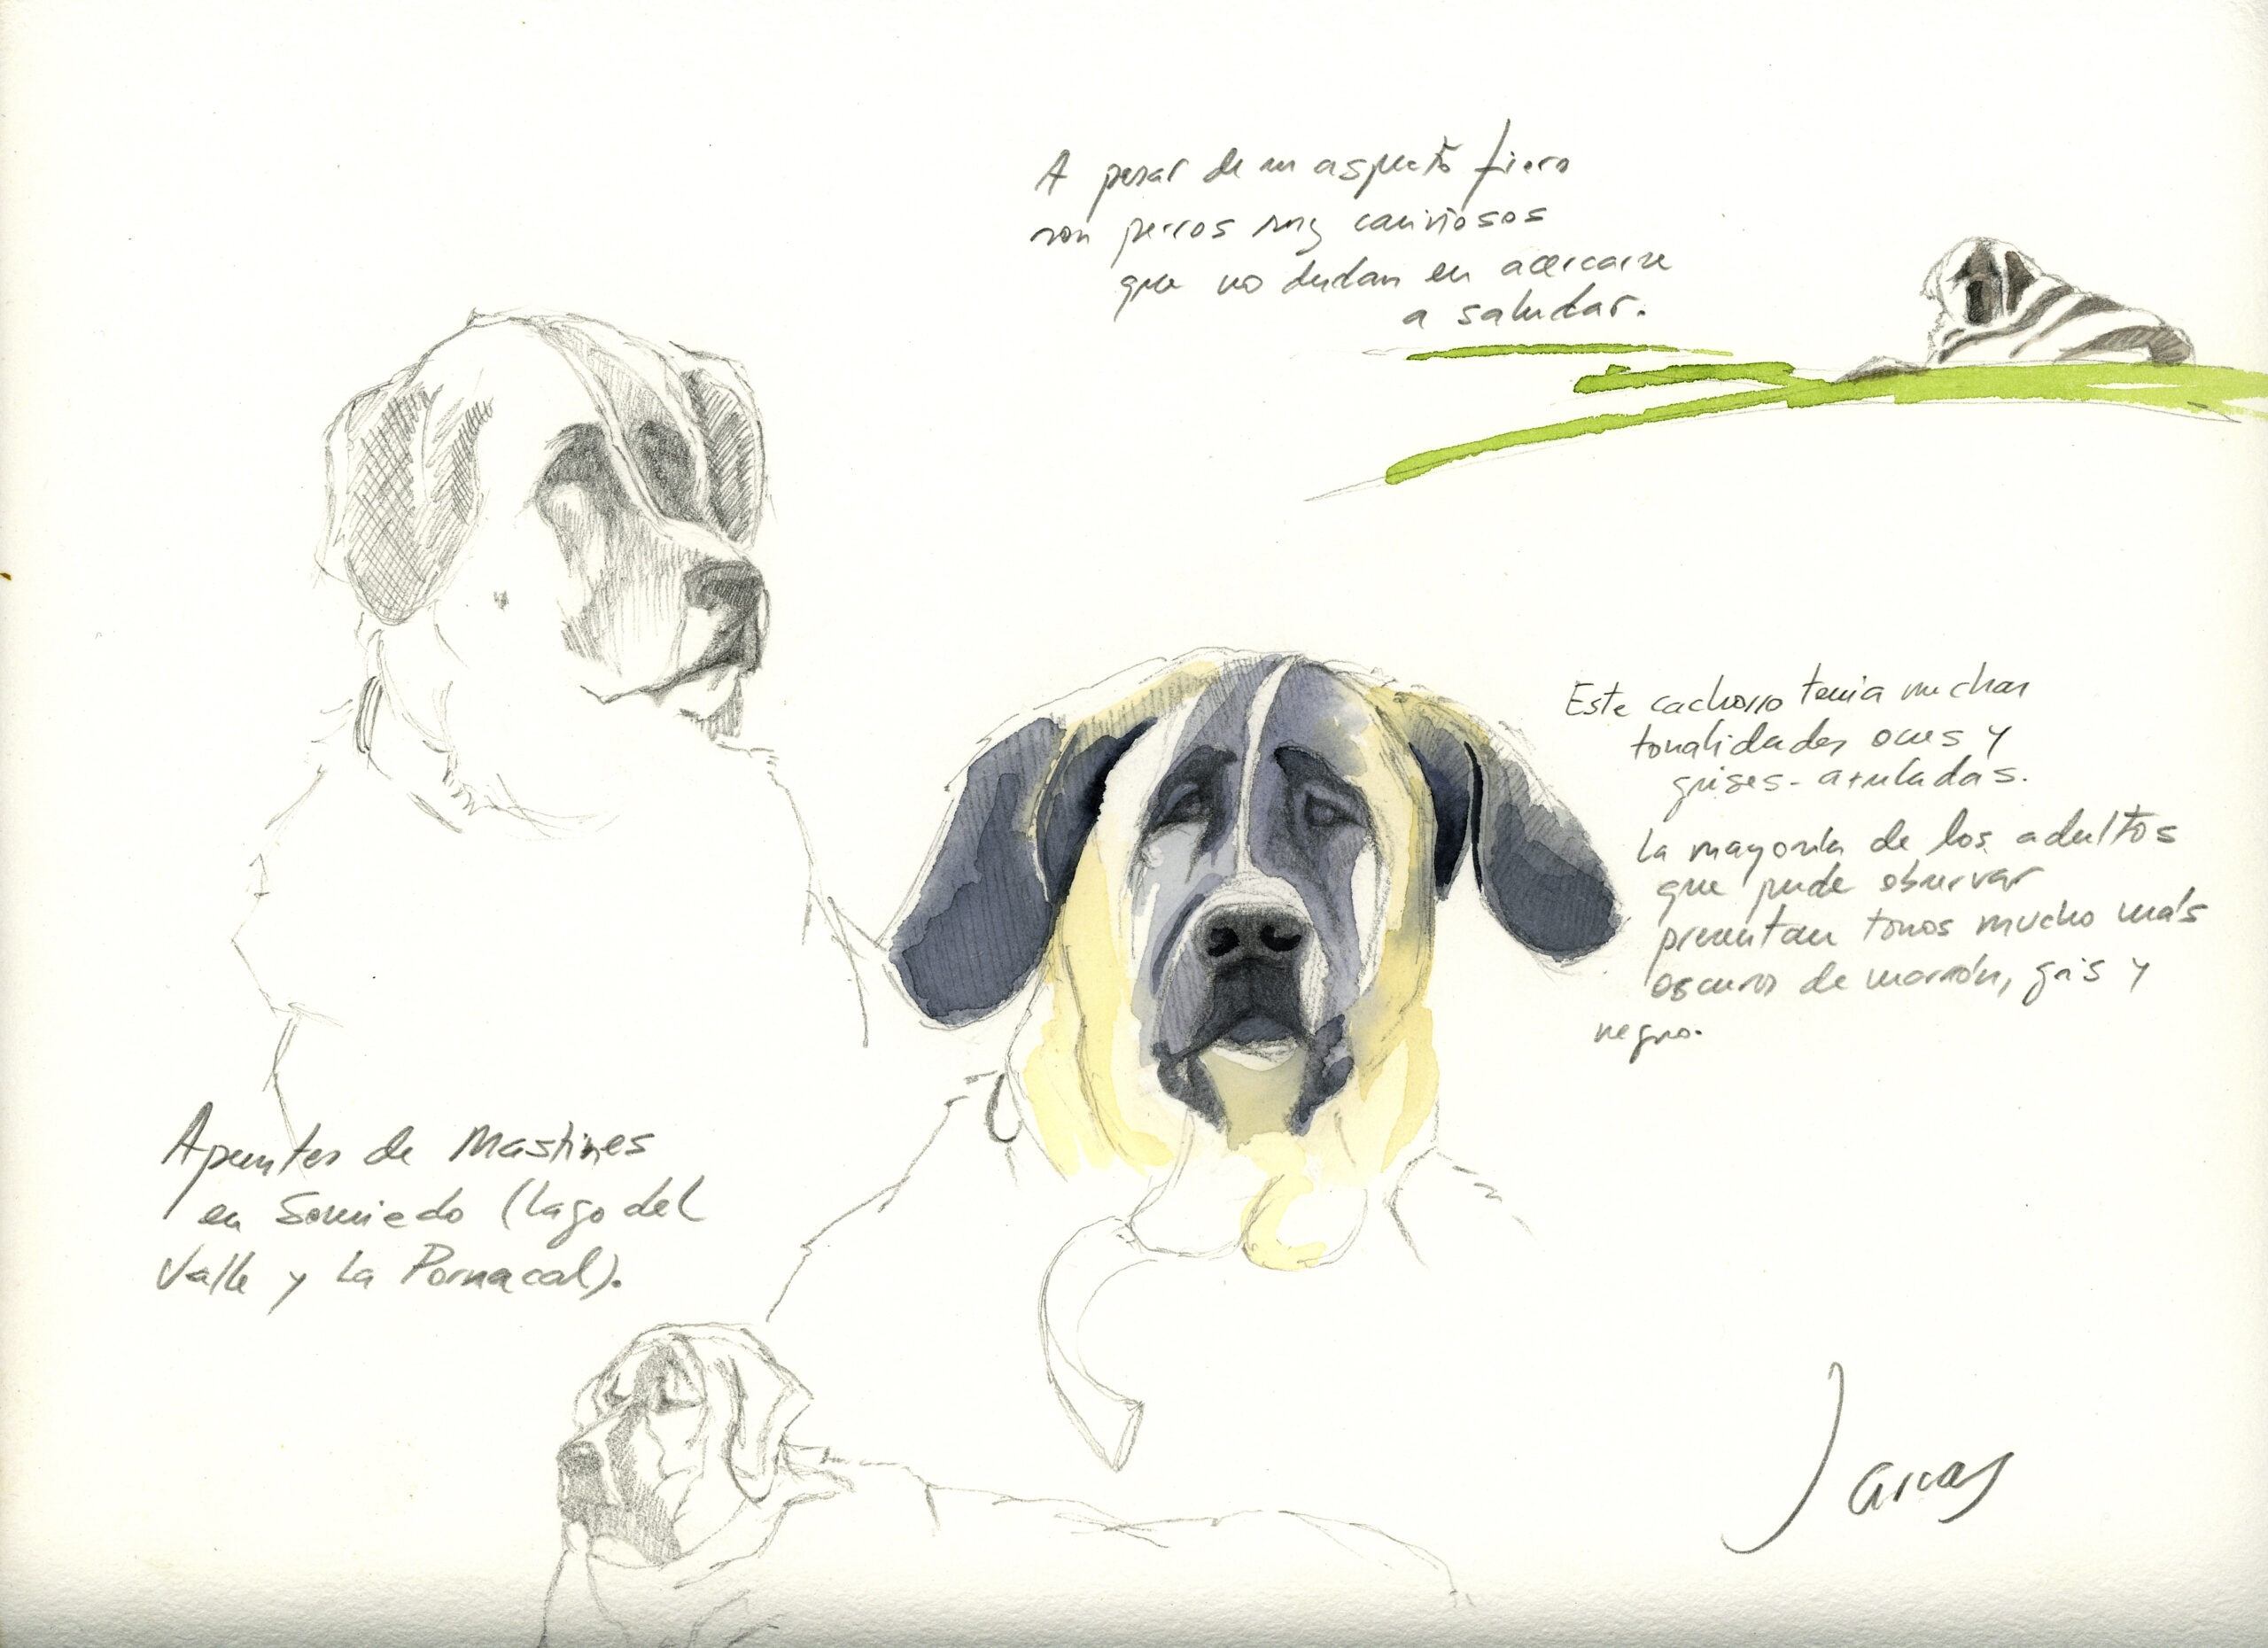 A pesar de su aspecto fiero
son perros muy cariñosos
que no dudan en acercarse
a saludar.
Este cachorro tenia muchas
tonalidades ocres y
grises-azuladas.
La mayoría de los adultos
que pude observar
presentan tonos mucho más
oscuros de marrón, gris y
negro.
Apuntes de Mastines
en Somiedo (Lago del
Valle y La Pornacal).
J Arcas